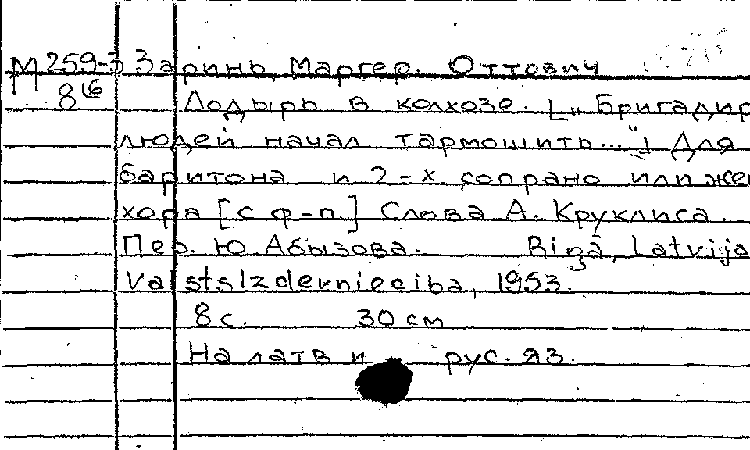 М 259-3 Заринь, Маргер. Оттович
8 Лодырь в колхозе. [„Бригадир
людей начал тармошить..."] Для
баритона и 2-х сопрано или же
хора [с ф-п] Слова А. Круклиса.
Пер. Ю. Абызова. Rīgā, Latvijas
Valsts Izdevnieciba, 1953.
8 с. 30 см
На латв и рус. яз.